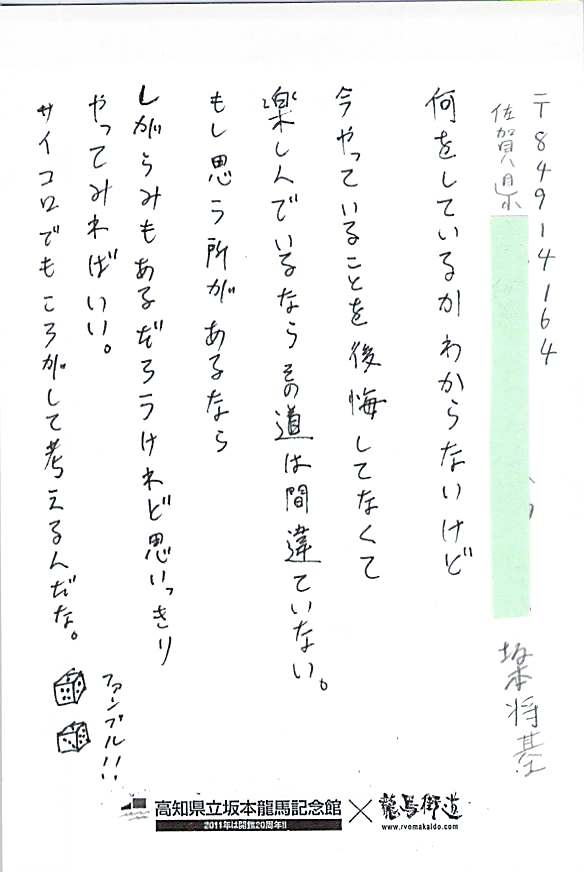 〒849-4164
佐賀県
坂本将基
何をしているかわからないけど
今やっていることを後悔してなくて
楽しんでいるならその道は間違ていない。
もし思う所があるなら
しがらみもあるだろうけれど思いっきり
やってみればいい。
サイコロでもころがして考えるんだな。
ファンブル!!
高知県立坂本龍馬記念館×龍馬街道
2011年は開館20周年!!
www.ryomakaido.com